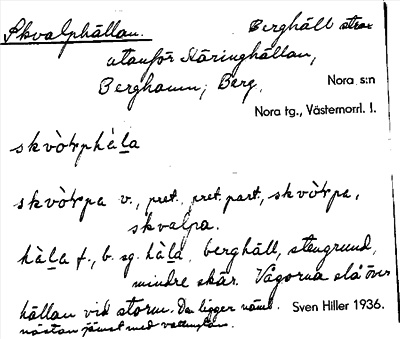 Skvalphällan. Berghäll strax
utanför Häringhällan,
Berghamn, Berg.
Nora s:n
Nora tg., Västernorrl. l.
skvòrphäla
skvòrpa v., pret., pret. part., skvòrpa,
skvalpa.
häla f., b. sg. häla, berghäll, stengrund,
mindre skär. Vågorna slå över
hällan vid storm. Den ligger näml.
Sven Hiller 1936.
nästan jämst med vattenytan.